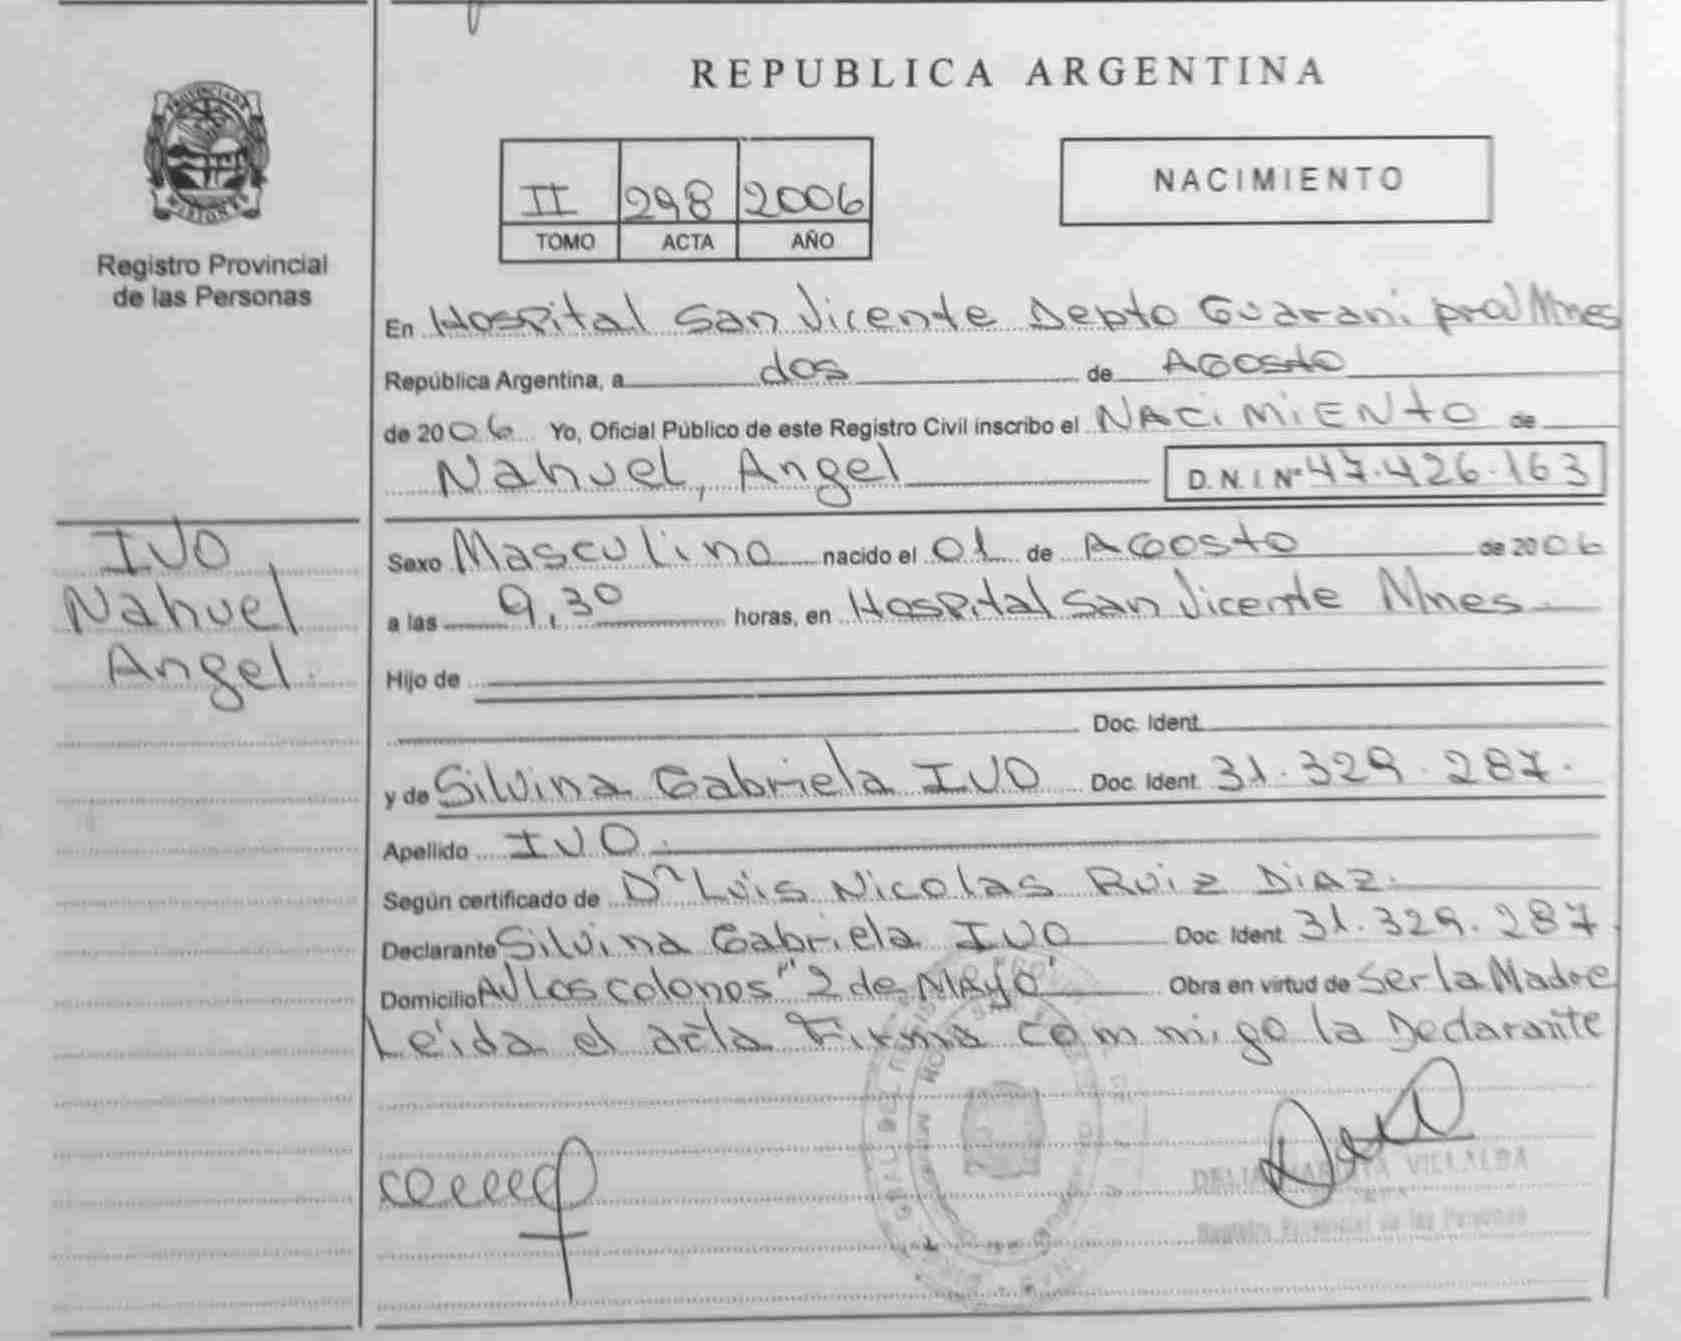 REPUBLICA ARGENTINA
PROVINCIA DE
MISIONES
Registro Provincial
de las Personas
II 298 2006
TOMO ACTA AÑO
NACIMIENTO
En Hospital San Vicente Depto Guarani prov Mnes
República Argentina, a dos de Agosto
de 2006 Yo, Oficial Público de este Registro Civil inscribo el NACIMIENTO de
Nahuel, Angel D.N.I Nº 47.426.163
IVO
Nahuel
Angel.
Sexo Masculino nacido el 01 de Agosto de 2006
a las 9,30 horas, en Hospital San Vicente Mnes
Hijo de
Doc. Ident.
y de Silvina Gabriela IVO Doc. Ident. 31.329.287.
Apellido IVO.
Según certificado de Dr Luis Nicolas Ruiz Diaz.
Declarante Silvina Gabriela IVO Doc. Ident. 31.329.287
Domicilio AV Los colonos "2 de Mayo" Obra en virtud de Ser la Madre
Leida el acta Firma com migo la Declarante
VILLALBA
Registro Provincial de las Personas